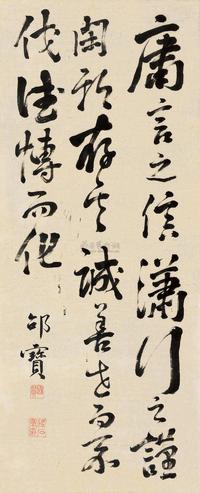 庸言之信行之謹
閑邪存其誠善世而不
伐德博而化
邵寶